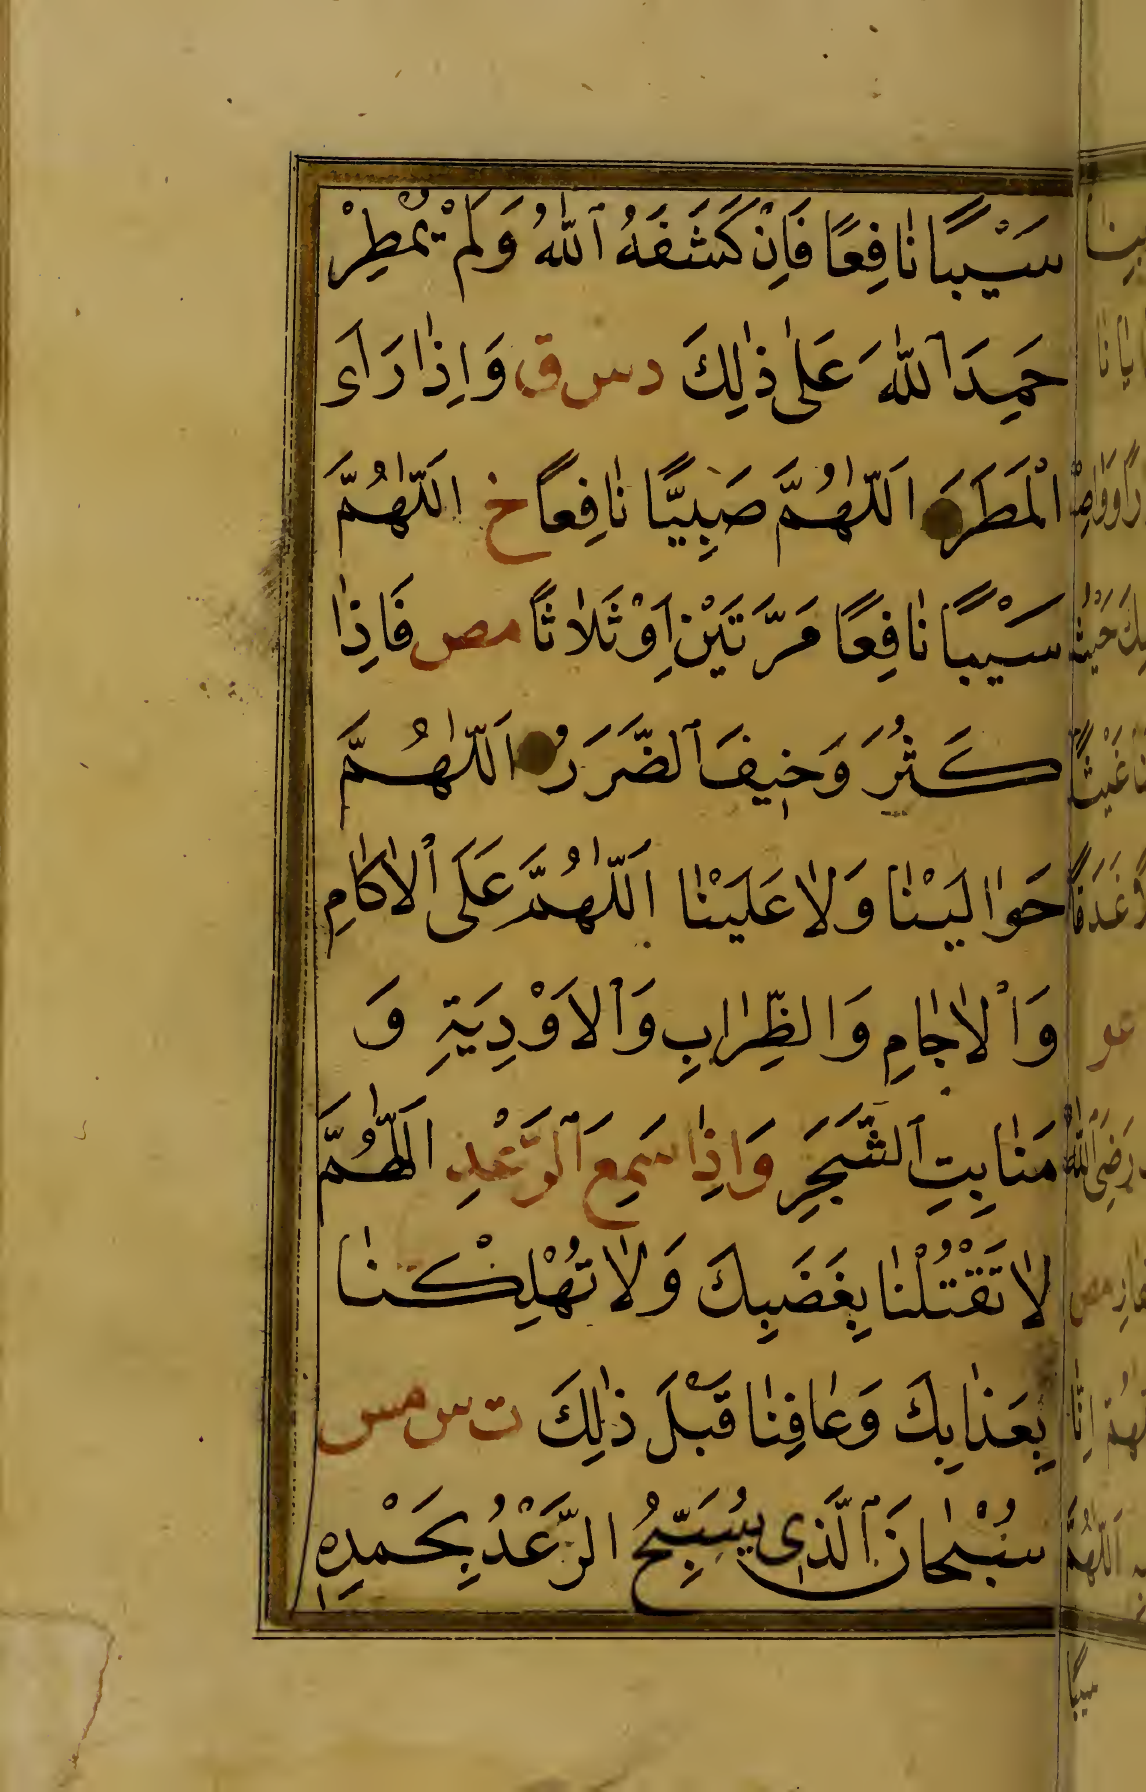 سَيْبًا نَافِعًا فَاِنْ كَشَفَهُ اللّٰهُ وَلَمْ يُمْطِرْ
حَمِدَ اللّٰهَ عَلٰى ذٰلِكَ د س ق وَاِذَا رَاَى
الْمَطَرَ اَللّٰهُمَّ صَيِّبًا نَافِعًا خ اَللّٰهُمَّ
سَيْبًا نَافِعًا مَرَّتَيْنِ اَوْ ثَلَاثًا مص فَاِذَا
كَثُرَ وَخِيفَ الضَّرَرُ اَللّٰهُمَّ
حَوَالَيْنَا وَلَا عَلَيْنَا اَللّٰهُمَّ عَلَى الْاٰكَامِ
وَالْاٰجَامِ وَالظِّرَابِ وَالْاَوْدِيَةِ وَ
مَنَابِتِ الشَّجَرِ وَاِذَا سَمِعَ الرَّعْدَ اَللّٰهُمَّ
لَا تَقْتُلْنَا بِغَضَبِكَ وَلَا تُهْلِكْنَا
بِعَذَابِكَ وَعَافِنَا قَبْلَ ذٰلِكَ ت س مس
سُبْحَانَ الَّذِى يُسَبِّحُ الرَّعْدُ بِحَمْدِهِ
سيبًا